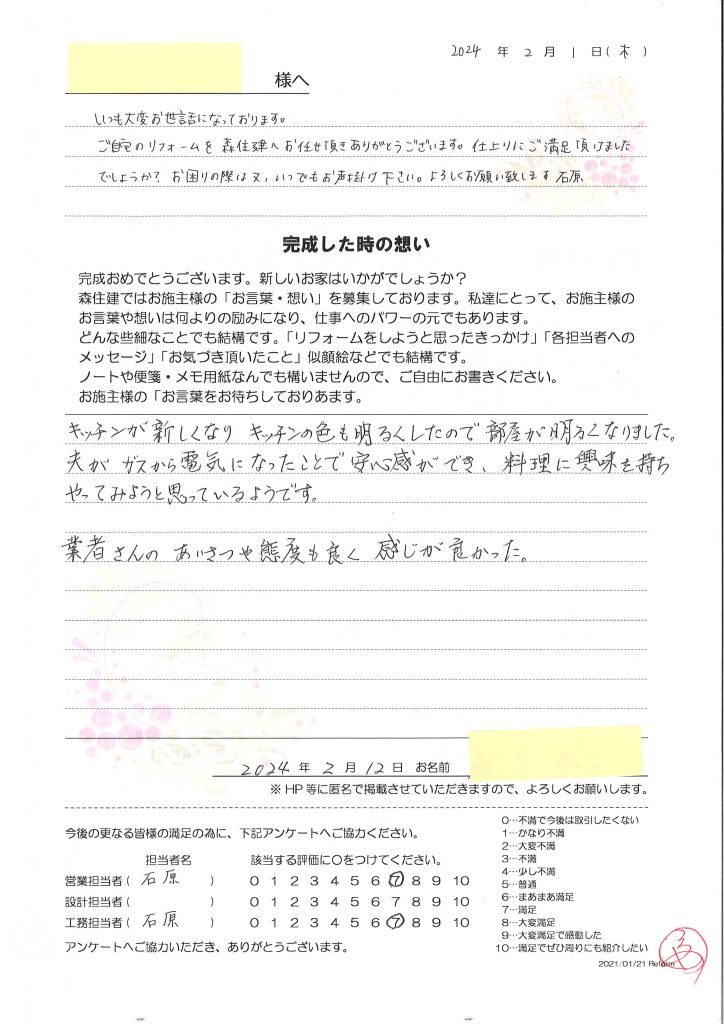 2024 年 2 月 1 日(木)
様へ
いつも大変お世話になっております。
ご自宅のリフォームを 森住建へお任せ頂きありがとうございます。仕上りにご満足頂けました
でしょうか? お困りの際は又、いつでもお声掛け下さい。よろしくお願い致します 石原
完成した時の想い
完成おめでとうございます。新しいお家はいかがでしょうか?
森住建ではお施主様の「お言葉・想い」を募集しております。私達にとって、お施主様の
お言葉や想いは何よりの励みになり、仕事へのパワーの元でもあります。
どんな些細なことでも結構です。「リフォームをしようと思ったきっかけ」「各担当者への
メッセージ」「お気づき頂いたこと」似顔絵などでも結構です。
ノートや便箋・メモ用紙なんでも構いませんので、ご自由にお書きください。
お施主様の「お言葉をお待ちしておりあます。
キッチンが新しくなり キッチンの色も明るくしたので部屋が明るくなりました。
夫が ガスから電気になったことで安心感ができ、料理に興味を持ち
やってみようと思っているようです。
業者さんの あいさつや態度も良く 感じが良かった。
2024 年 2 月 12 日 お名前
※HP等に匿名で掲載させていただきますので、よろしくお願いします。
今後の更なる皆様の満足の為に、下記アンケートへご協力ください。
担当者名 該当する評価に○をつけてください。
営業担当者( 石原 ) 0 1 2 3 4 5 6 7 8 9 10
設計担当者( ) 0 1 2 3 4 5 6 7 8 9 10
工務担当者( 石原 ) 0 1 2 3 4 5 6 7 8 9 10
アンケートへご協力いただき、ありがとうございます。
0…不満で今後は取引したくない
1…かなり不満
2…大変不満
3…不満
4…少し不満
5…普通
6…まあまあ満足
7…満足
8…大変満足
9…大変満足で感動した
10…満足でぜひ周りにも紹介したい
2021/01/21 Reform